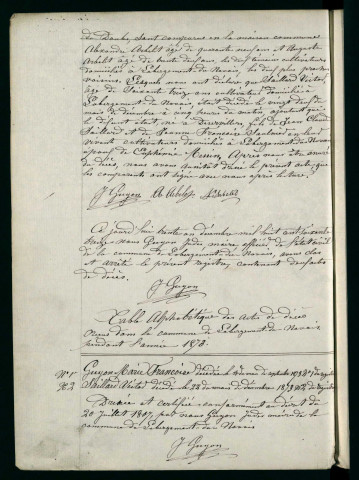 du Doubs, sont comparus en la maison commune
Alexandre Arbilet âgé de quarante neuf ans et Auguste
Arbilet âgé de trente deux ans, tous deux cultivateurs
domiciliés à Labergement du Navois,
voisins, Lesquels nous ont déclaré que Saillard Victor,
âgé de soixante treize ans cultivateur domicilié à
Labergement du Navois, était décédé le vingt
mois de décembre à cinq heures du matin, ajoutant que
le défunt était né à fils de Jean Claude
Saillard et de Jeanne Françoise en leur
vivant cultivateurs domiciliés à Labergement du Navois
époux de Euphémie Après nous être assuré
du décès, nous avons rédigé le présent acte que
les comparants ont signé avec nous après lecture.
J Guyon A Arbilet
Ce jourd'hui trente un décembre mil huit cent soixante
nous Guyon Judes, maire, officier de l'état civil
de la commune de Labergement du Navois, avons clos
et arrêté le présent registre, contenant deux actes
de décès.
J Guyon
Table Alphabétique des actes de décès
reçus dans la commune de Labergement du Navois
pendant l'année 1873.
N° 1 Guyon Marie Françoise décédée le
N° 2 Saillard Victor décédé le 28 du mois de décembre 1873
Dressée et certifiée conformément au décret du
20 juillet 1807, par nous Guyon Judes maire de la
commune de Labergement du Navois
J Guyon